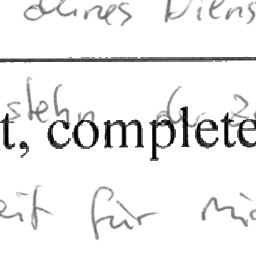 deines Diens
stehn der Ze
t, complete
eit für mic